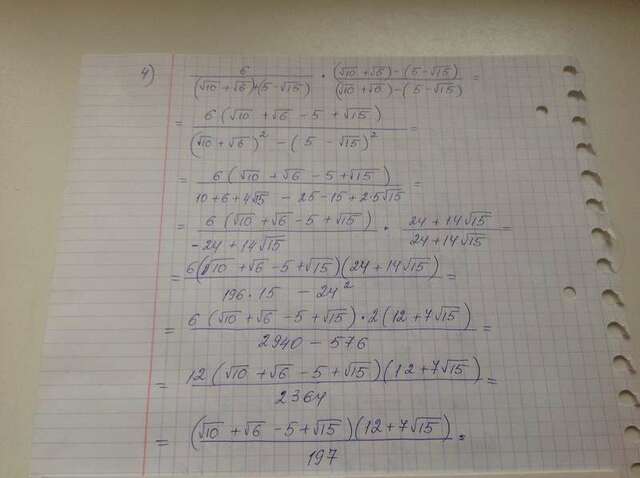 4) 6/((√10 + √6)+(5 - √15)) · ((√10 + √6) - (5 - √15))/((√10 + √6) - (5 - √15)) =
= 6(√10 + √6 - 5 + √15)/((√10 + √6)² - (5 - √15)²) =
= 6(√10 + √6 - 5 + √15)/(10 + 6 + 4√15 - 25 - 15 + 2·5√15) =
= 6(√10 + √6 - 5 + √15)/(-24 + 14√15) · (24 + 14√15)/(24 + 14√15) =
= 6(√10 + √6 - 5 + √15)(24 + 14√15)/(196·15 - 24²) =
= 6(√10 + √6 - 5 + √15)·2(12 + 7√15)/(2940 - 576) =
= 12(√10 + √6 - 5 + √15)(12 + 7√15)/2364 =
= (√10 + √6 - 5 + √15)(12 + 7√15)/197 =